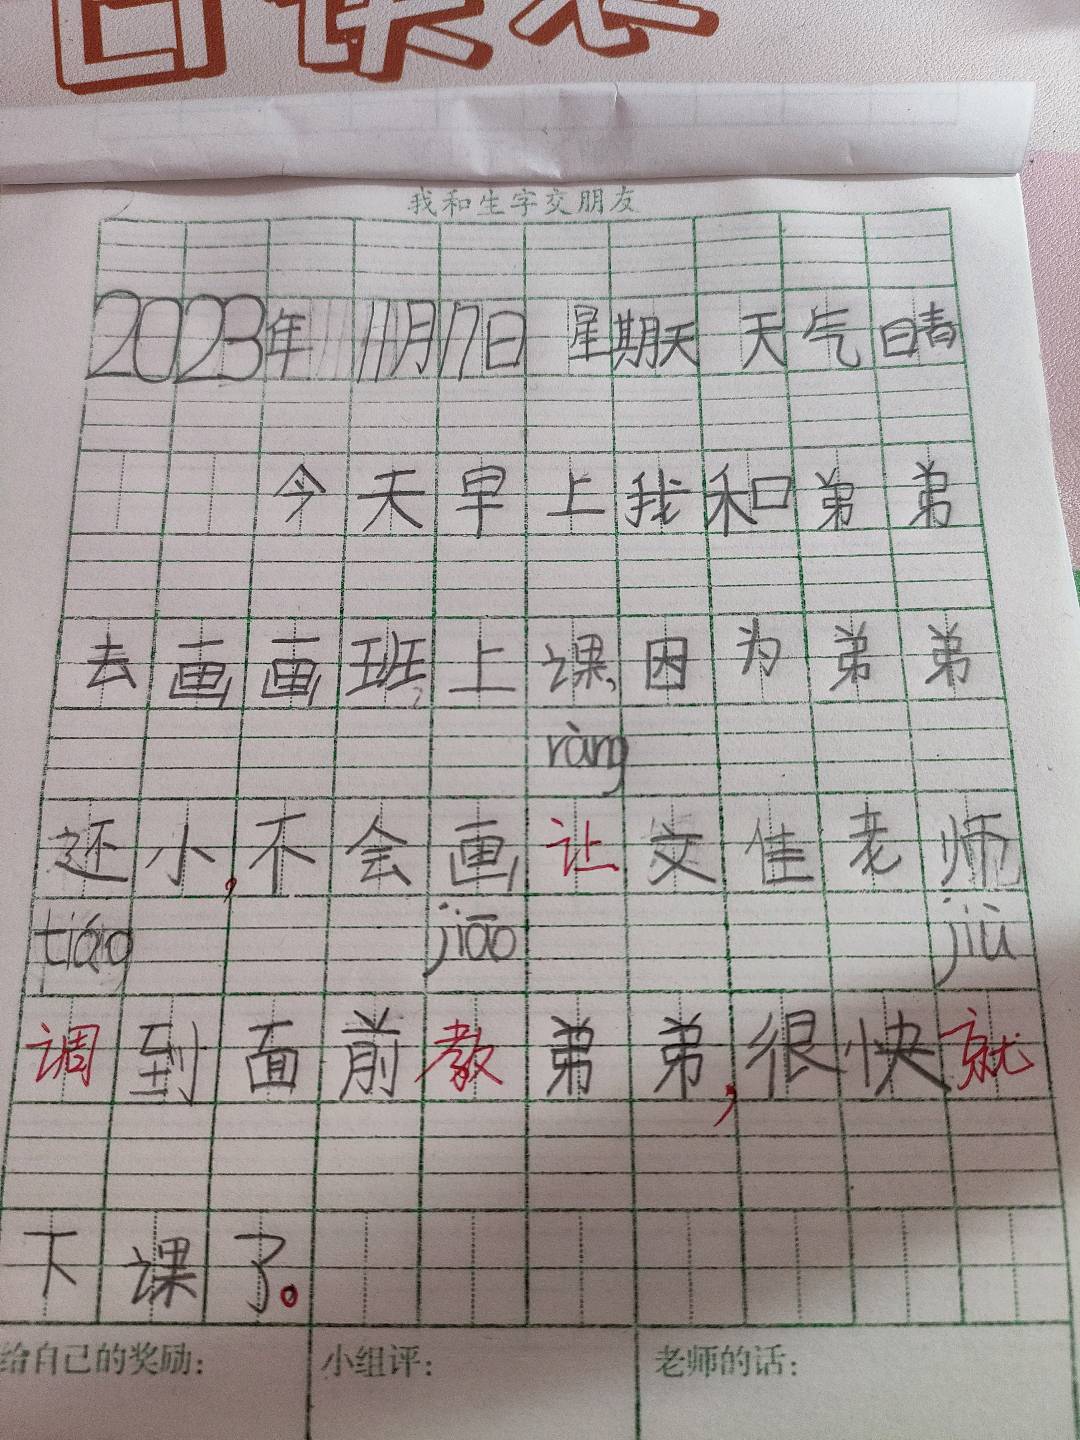 我和生字交朋友
2023年11月17日 星期天 天气晴
今天早上我和弟弟
去画画班上课,因为弟弟
ràng
还小,不会画让文佳老师
tiáo jiāo jiù
调到面前教弟弟,很快就
下课了。
给自己的奖励: 小组评: 老师的话: